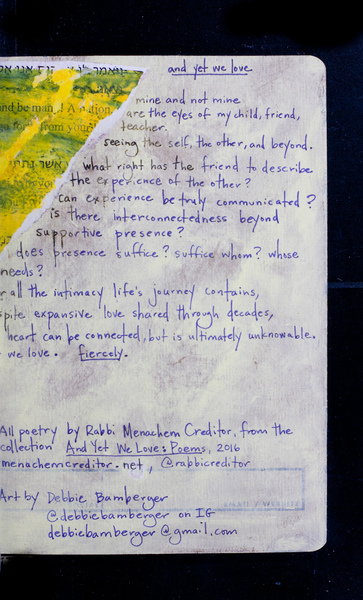 and yet we love
nd be man A nation,
from your
אשר נתתי
mine and not mine
are the eyes of my child, friend,
teacher.
seeing the self, the other, and beyond.
what right has the friend to describe
the experience of the other?
can experience be truly communicated?
is there interconnectedness beyond
supportive presence?
does presence suffice? suffice whom? whose
needs?
r all the intimacy life's journey contains,
spite expansive love shared through decades,
heart can be connected, but is ultimately unknowable.
we love. fiercely.
All poetry by Rabbi Menachem Creditor, from the
collection And Yet We Love: Poems, 2016
menachemcreditor.net, @rabbicreditor
Art by Debbie Bamberger
@debbiebamberger on IG
debbiebamberger@gmail.com